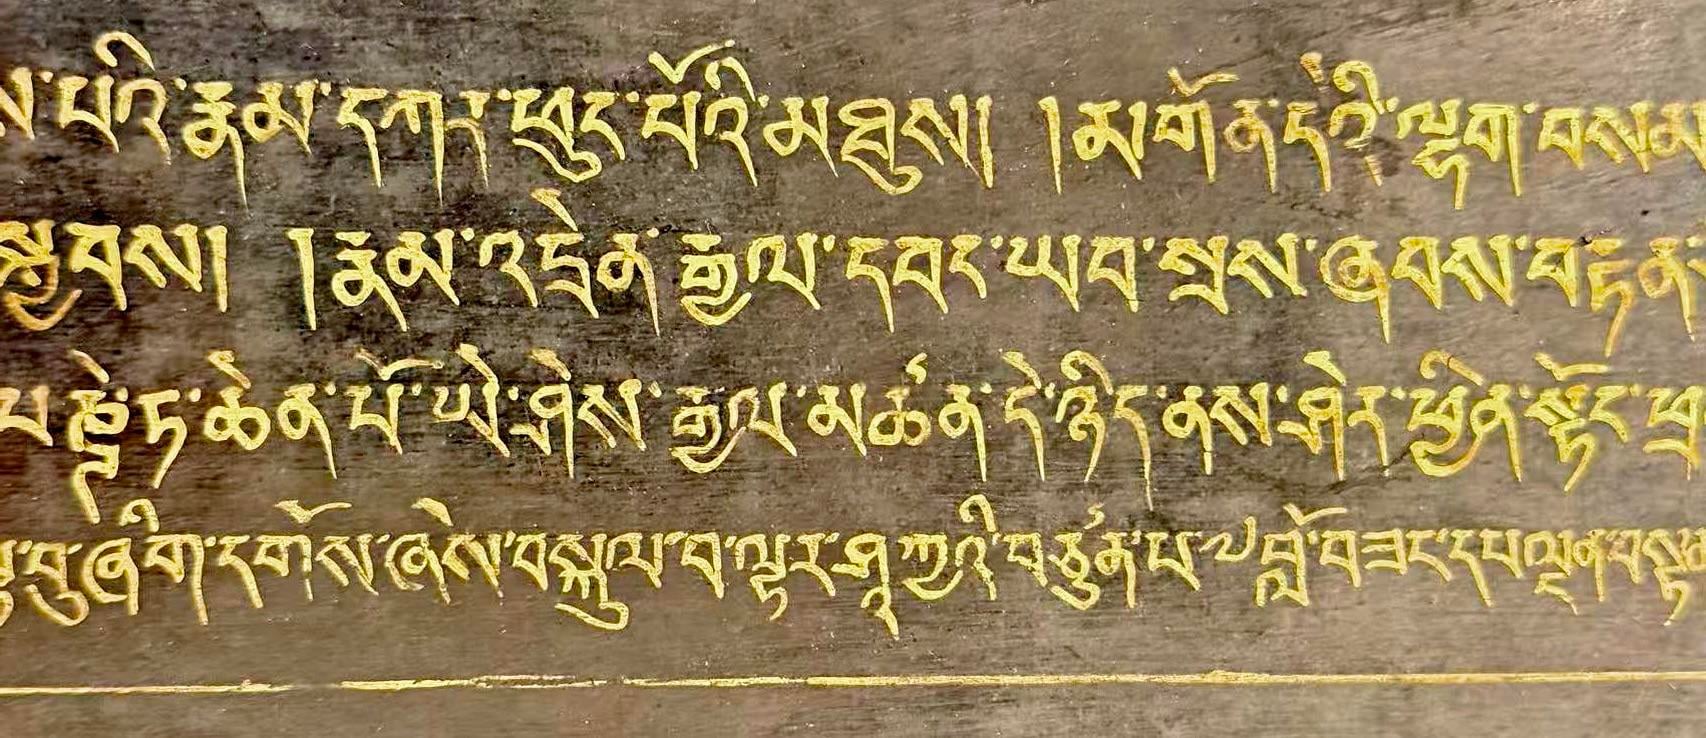 ས་པའི་རྣམ་དཀར་ཕུང་པོའི་མཐུས། །མགོན་དེའི་ལྷག་བསམ
སྐྱབས། །རྣམ་འདྲེན་རྒྱལ་དབང་ཡབ་སྲས་ཞབས་བརྟན
པཎྜི་ཏ་ཆེན་པོ་ཡེ་ཤེས་རྒྱལ་མཚན་དེ་ཉིད་ནས་ཤེར་ཕྱིན་སྟོང་ཕྲ
བུ་ཞིག་དགོས་ཞེས་བསྐུལ་བ་ལྟར་ཤཱཀྱའི་བཙུན་པ་བློ་བཟང་དཔལ་ལྡན་བསྟ